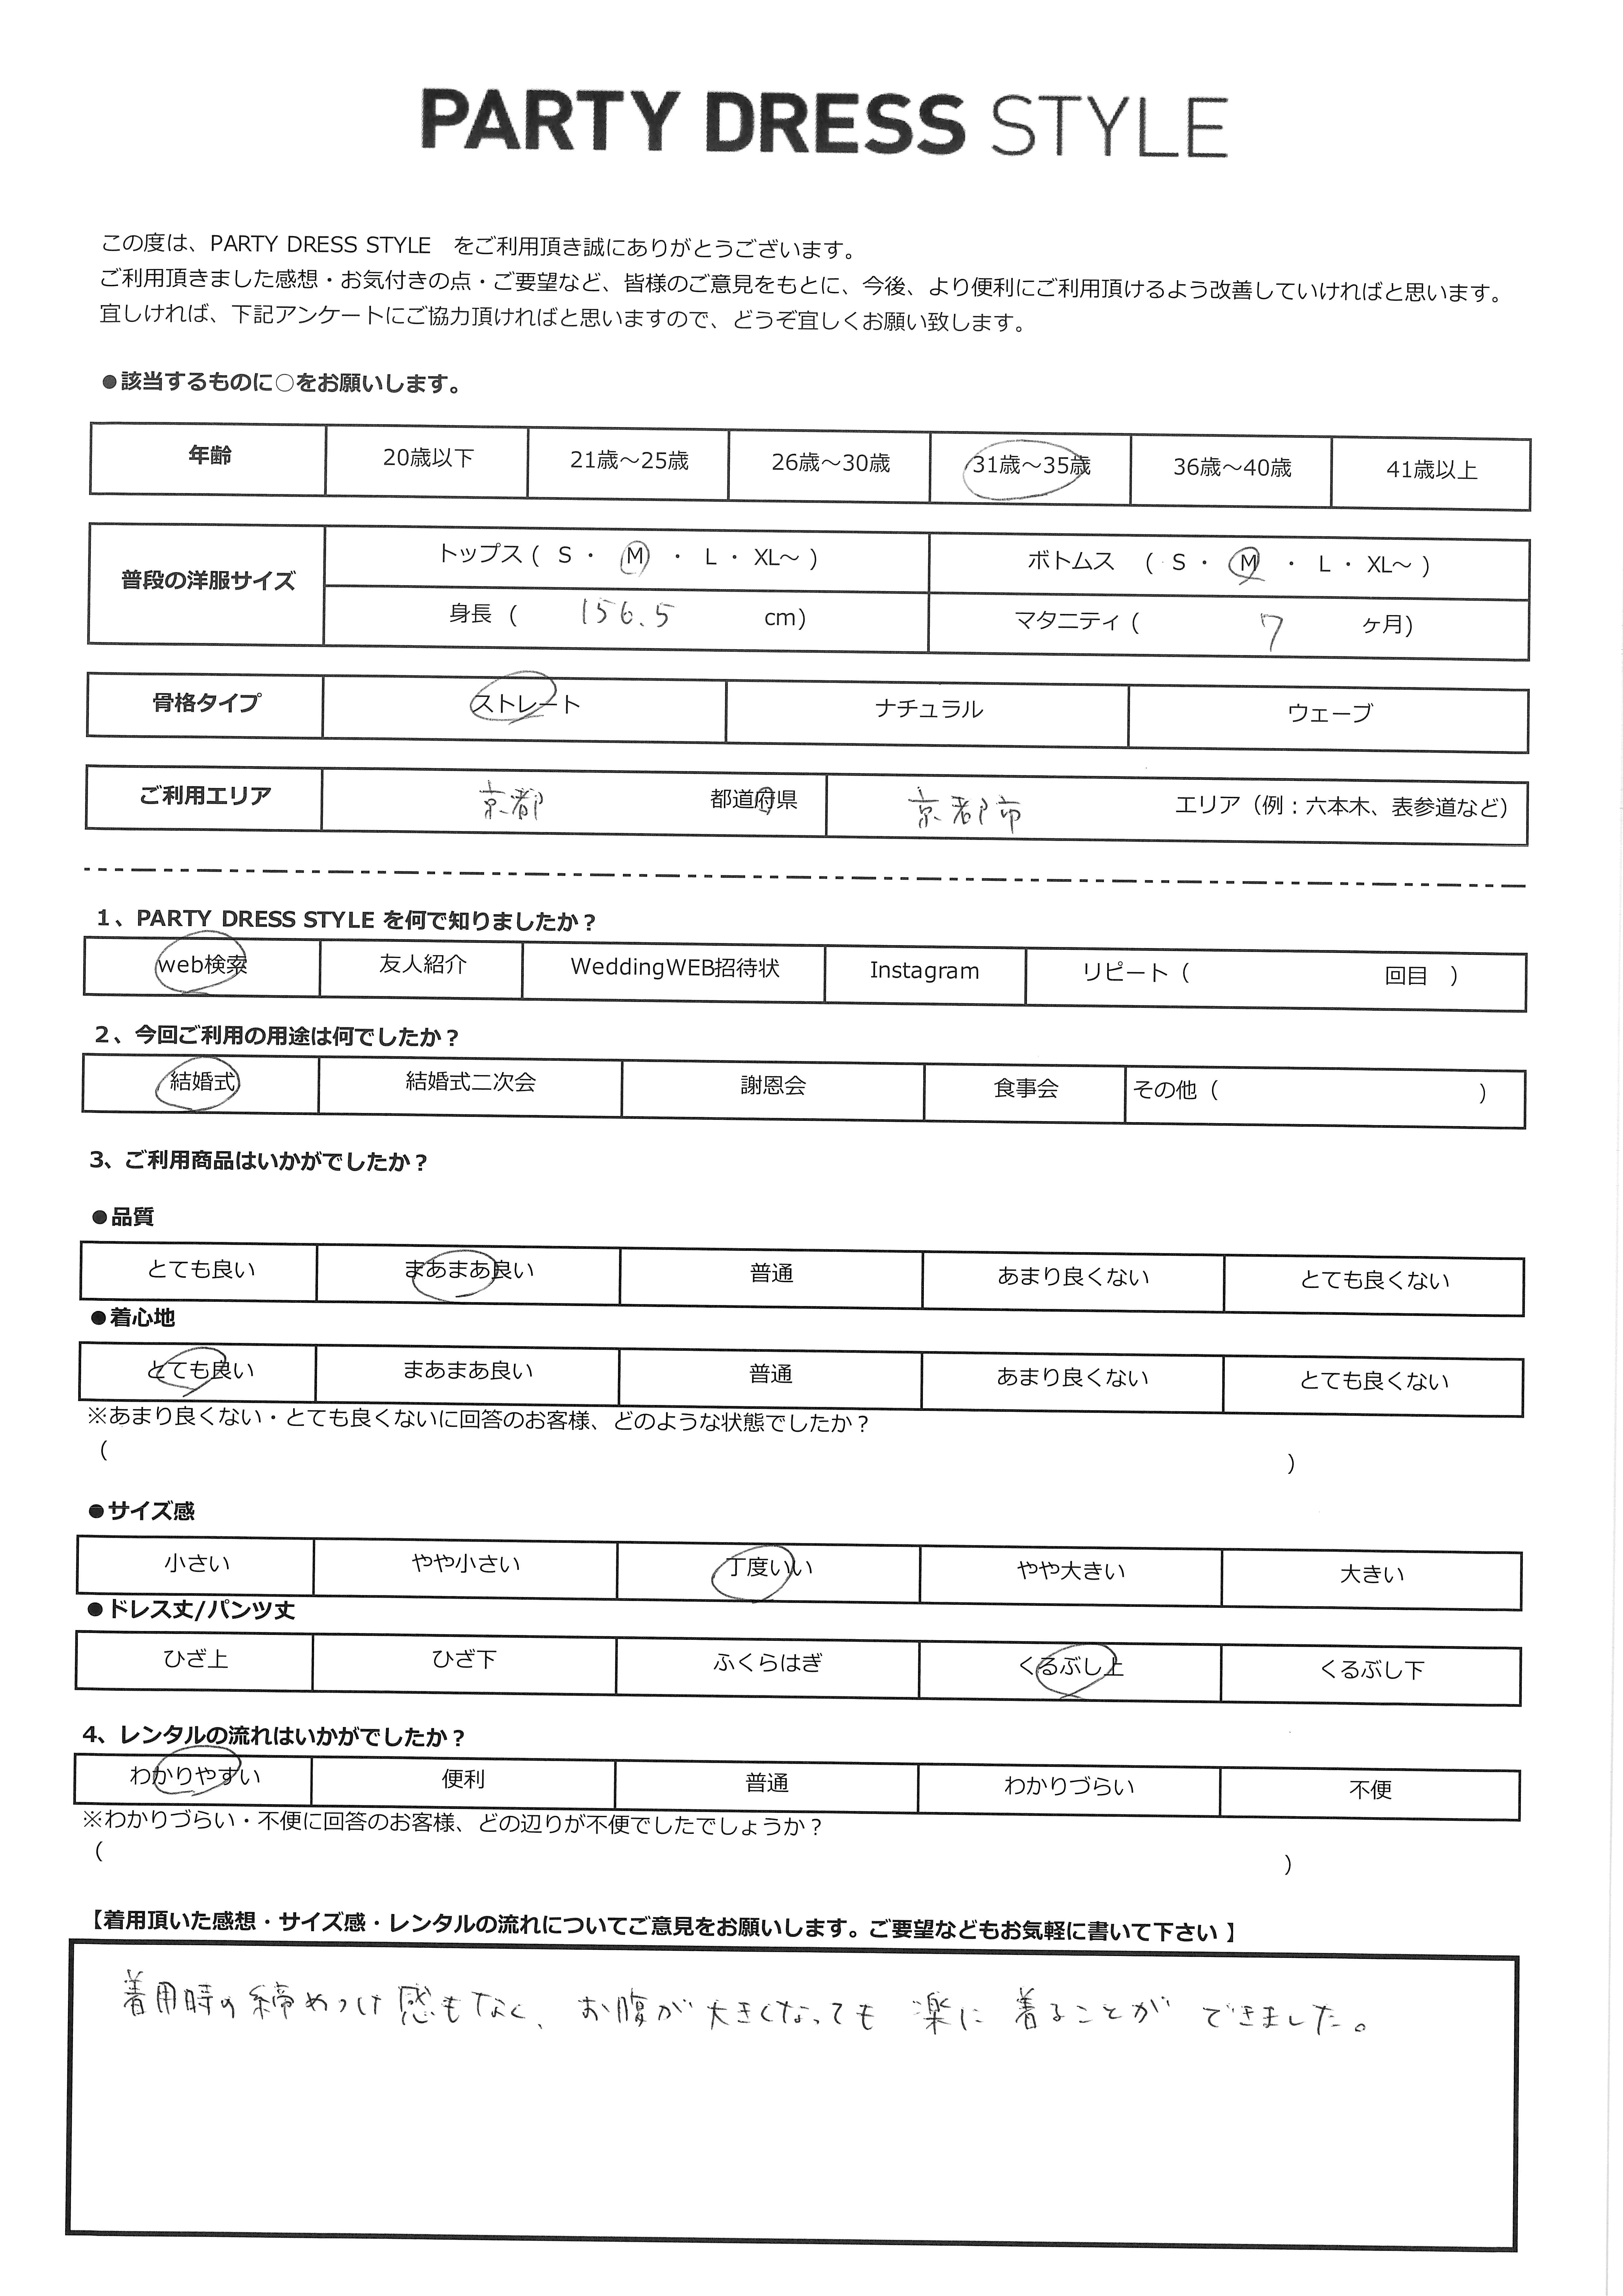 PARTY DRESS STYLE
この度は、PARTY DRESS STYLE をご利用頂き誠にありがとうございます。
ご利用頂きました感想・お気付きの点・ご要望など、皆様のご意見をもとに、今後、より便利にご利用頂けるよう改善していければと思います。
宜しければ、下記アンケートにご協力頂ければと思いますので、どうぞ宜しくお願い致します。
●該当するものに○をお願いします。
年齢 20歳以下 21歳～25歳 26歳～30歳 31歳～35歳 36歳～40歳 41歳以上
普段の洋服サイズ
トップス ( S ・ M ・ L ・ XL～ ) ボトムス ( S ・ M ・ L ・ XL～ )
身長 ( 156.5 cm) マタニティ ( 7 ヶ月)
骨格タイプ ストレート ナチュラル ウェーブ
ご利用エリア 京都 都道府県 京都市 エリア（例：六本木、表参道など）
1、PARTY DRESS STYLE を何で知りましたか？
web検索 友人紹介 WeddingWEB招待状 Instagram リピート（ 回目 ）
2、今回ご利用の用途は何でしたか？
結婚式 結婚式二次会 謝恩会 食事会 その他（ ）
3、ご利用商品はいかがでしたか？
●品質
とても良い まあまあ良い 普通 あまり良くない とても良くない
●着心地
とても良い まあまあ良い 普通 あまり良くない とても良くない
※あまり良くない・とても良くないに回答のお客様、どのような状態でしたか？
（ ）
●サイズ感
小さい やや小さい 丁度いい やや大きい 大きい
●ドレス丈/パンツ丈
ひざ上 ひざ下 ふくらはぎ くるぶし上 くるぶし下
4、レンタルの流れはいかがでしたか？
わかりやすい 便利 普通 わかりづらい 不便
※わかりづらい・不便に回答のお客様、どの辺りが不便でしたでしょうか？
（ ）
【着用頂いた感想・サイズ感・レンタルの流れについてご意見をお願いします。ご要望などもお気軽に書いて下さい 】
着用時の締めつけ感もなく、お腹が大きくなっても楽に着ることができました。